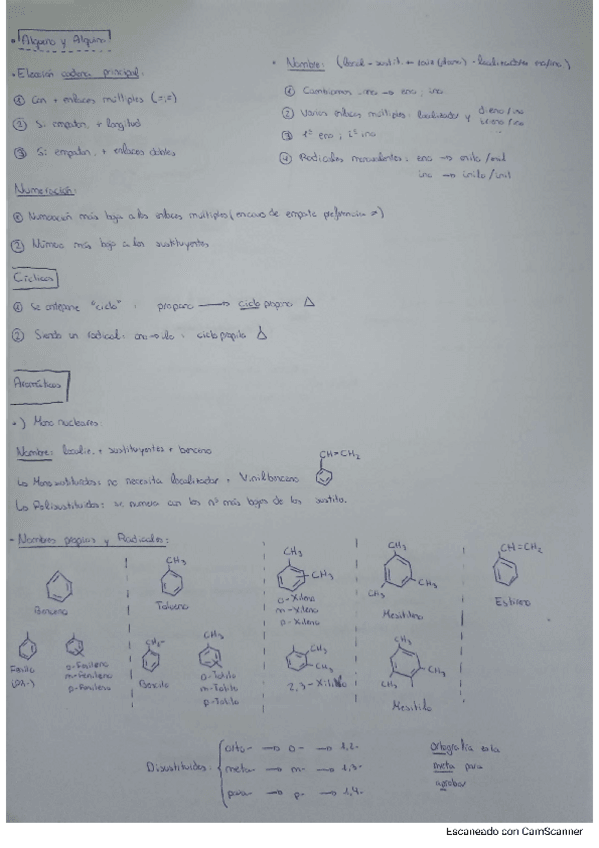 • Alqueno y Alquino
• Elección cadena principal:
① Con + enlaces múltiples (=,≡)
② Si empatan, + longitud
③ Si empatan, + enlaces dobles
• Nombre: (local - sustit. + raíz (etano) - localizadores no/ino)
① Cambiamos -ano → eno, ino
② Varios enlaces múltiples: localizador y dieno/ino
trieno/ino
③ 1º eno; 2º ino
④ Radicales monovalentes: eno → enilo/enil
ino → inilo/inil
Numeración:
① Numeración más baja a los enlaces múltiples (en caso de empate preferencia =)
② Número más bajo a los sustituyentes
Cíclicos
① Se antepone "ciclo": propano → ciclo propano
② Siendo un radical: ano → ilo: ciclopropilo
Aromáticos
•) Mono nucleares
Nombre: localiz. + sustituyentes + benceno
↳ Monosustituidos: no necesita localizador: Vinilbenceno
CH=CH₂
↳ Polisustituidos: se numera con los nº más bajos de los sustit.
- Nombres propios y Radicales:
Benceno
CH₃
Tolueno
CH₃
CH₃
o-Xileno
m-Xileno
CH₃
CH₃
CH₃
Mesitileno
CH=CH₂
Estireno
Fenilo
o-Fenileno
m-Fenileno
p-Fenileno
CH₂-
Bencilo
CH₃
o-Tolilo
m-Tolilo
p-Tolilo
CH₃
CH₃
2,3-Xililo
CH₃
CH₃
CH₃
Mesitilo
Disustituidos:
orto- → o- → 1,2-
meta- → m- → 1,3-
para- → p- → 1,4-
Ortografía es la
meta para
aprobar
Escaneado con CamScanner